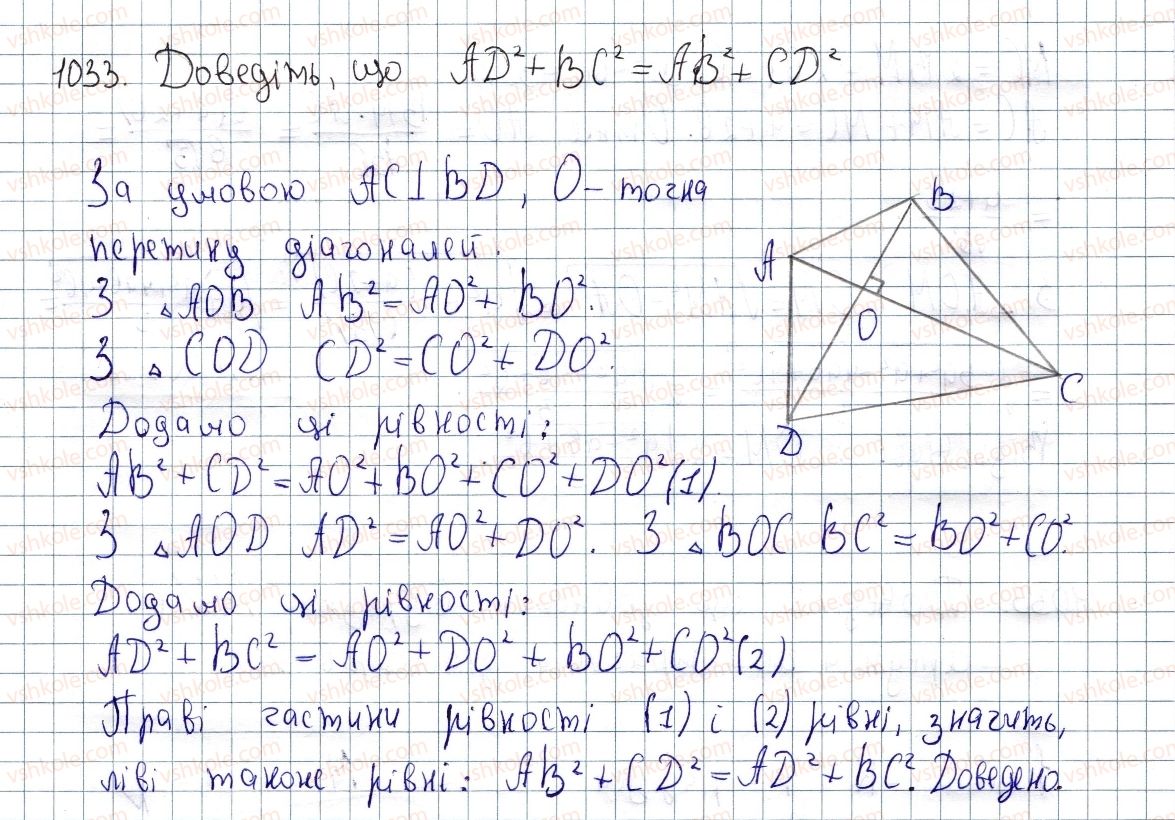 1033. Доведіть, що AD² + BC² = AB² + CD²
За умовою AC⊥BD, O – точка
перетину діагоналей.
З △AOB AB² = AO² + BO².
З △COD CD² = CO² + DO².
Додамо ці рівності:
AB² + CD² = AO² + BO² + CO² + DO² (1).
З △AOD AD² = AO² + DO². З △BOC BC² = BO² + CO².
Додамо ці рівності:
AD² + BC² = AO² + DO² + BO² + CO² (2).
Праві частини рівності (1) і (2) рівні, значить,
ліві також рівні: AB² + CD² = AD² + BC². Доведено.
B
A
O
C
D
vshkole.com